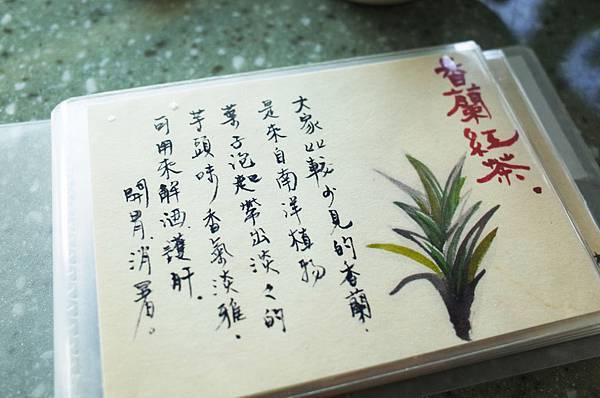 香蘭紅茶.
大家比較少見的香蘭.
是來自南洋植物
葉子泡起帶出淡々的
芋頭味香氣淡雅.
可用來解酒.護肝.
開胃消暑。